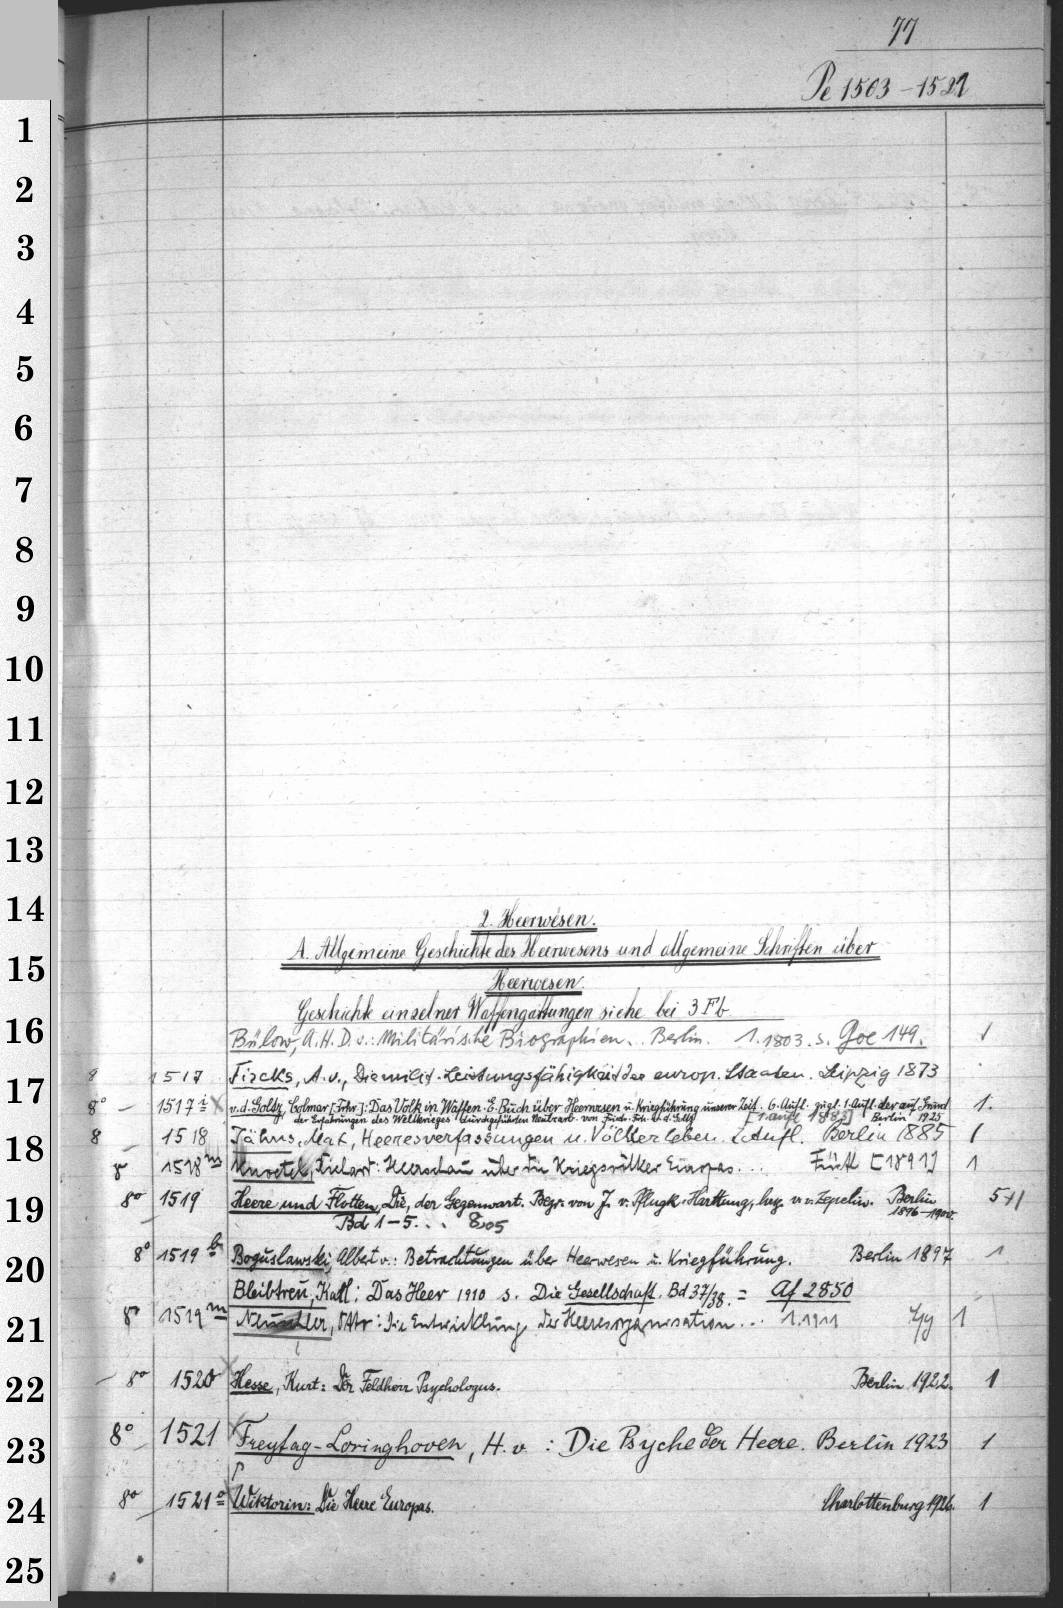 77
Pe 1503-1521
1
2
3
4
5
6
7
8
9
10
11
12
13
14
15
16
17
18
19
20
21
22
23
24
25
2. Heerwesen.
A. Allgemeine Geschichte des Heerwesens und allgemeine Schriften über
Heerwesen.
Geschichte einzelner Waffengattungen siehe bei 3 Fb
Bülow, A. H. D. v.: Militärische Biographien. Berlin. 1.1803. s. Goe 149. 1
8 1517 Fircks, A. v., Die milit. Leistungsfähigkeit der europ. Staaten. Leipzig 1873
8° - 1517 i v. d. Goltz, Colmar [Frhr.]: Das Volk in Waffen. E. Buch über Heerwesen u. Kriegführung unserer Zeit. 6. Aufl. zugl. 1. Aufl. der auf Grund 1.
der Erfahrungen des Weltkrieges durchgeführten Neubearb. von Friedr. Frh. v. d. Goltz [1. Aufl. 1883] Berlin 1925
8 1518 Jähns, Max, Heeresverfassungen u. Völkerleben. 2. Aufl. Berlin 1885 1
8° 1518 m Knoetel, Richard: Heerschau über die Kriegsvölker Europas... [1891] 1
8° 1519 Heere und Flotten, Die, der Gegenwart. Begr. von J. v. Pflugk-Harttung, hrg. v. v. Zepelin. Berlin 5+1
Bd 1-5... 8,05 1896-1900.
8° 1519 b Boguslawski, Albert v.: Betrachtungen über Heerwesen u. Kriegführung. Berlin 1897 1
Bleibtreu, Karl: Das Heer 1910 s. Die Gesellschaft. Bd 37/38. = Af 2850
8° 1519 m Otto: Die Entwicklung der Heeresorganisation... 1.1911 Lpg 1
8° 1520 Hesse, Kurt: Der Feldherr Psychologus. Berlin 1922. 1
8° 1521 Freytag-Loringhoven, H. v.: Die Psyche der Heere. Berlin 1923 1
8° 1521 a Wiktorin: Die Heere Europas. Charlottenburg 1926. 1